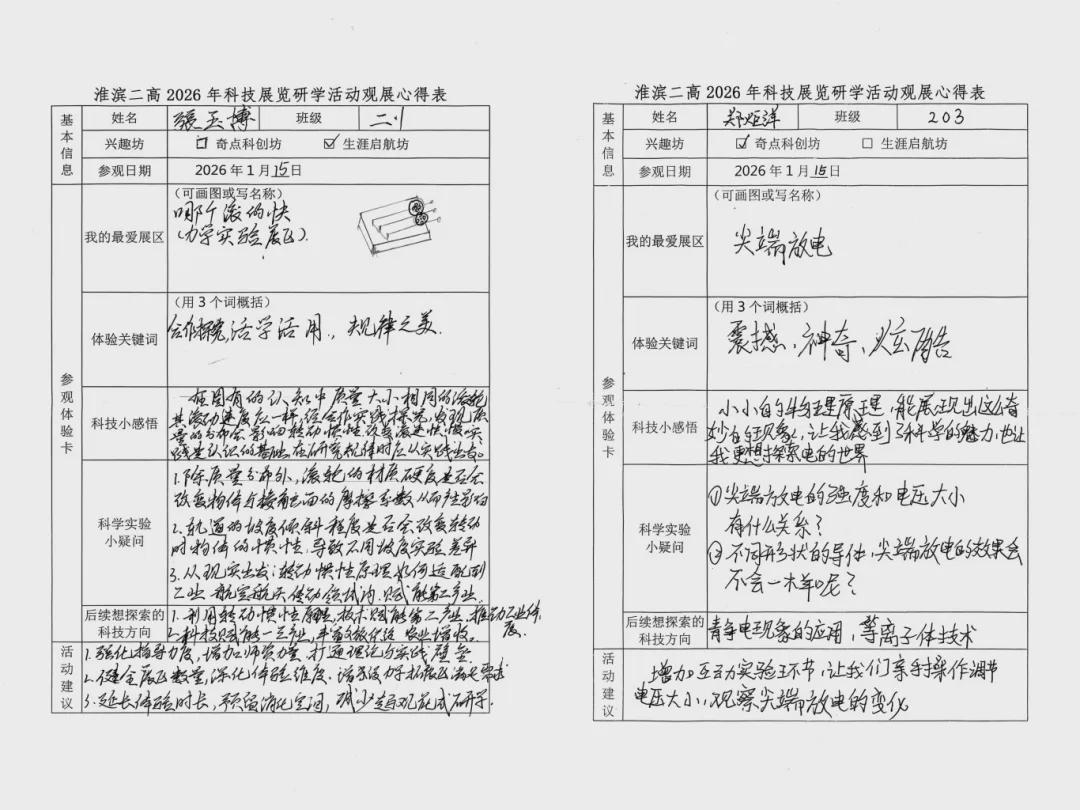 淮滨二高2026年科技展览研学活动观展心得表
基本信息
姓名 張玉博 班级 二、1
兴趣坊 □ 奇点科创坊 ☑ 生涯启航坊
参观日期 2026年1月15日
参观体验卡
我的最爱展区
(可画图或写名称)
哪个滚的快
(力学实验展区).
体验关键词
(用3个词概括)
合作探究,活学活用., 规律之美.
科技小感悟
在固有的认知中质量大小相同的滚轮
其滚动速度应一样,经合作实践探究,发现质
量的分布会影响转动惯性改变滚速快慢,实
践是认识的基础,在研究规律时应从实践出发。
科学实验小疑问
1.除质量分布外,滚轮的材质硬度是否会
改变物体与接触面的摩擦系数从而产生影响
2.轨道的坡度倾斜程度是否会改变转动
时物体的惯性,导致不同坡度实验差异
3.从现实出发:转动惯性原理如何适配到
工业、航空航天传动领域内,赋能第二产业.
后续想探索的科技方向
1.利用转动惯性原理,技术赋能第二产业,推动工业体
展。
2.科技赋能一三产业,丰富文旅优选 农业增收。
活动建议
1.强化指导力度,增加师资力量,打通理论与实践壁垒
2.健全展区数量,深化体验维度,增设力学拓展区满足需求
3.延长体验时长,预留消化空间,减少走马观花式研学.
淮滨二高2026年科技展览研学活动观展心得表
基本信息
姓名 郑炬洋 班级 203
兴趣坊 ☑ 奇点科创坊 □ 生涯启航坊
参观日期 2026年1月15日
参观体验卡
我的最爱展区
(可画图或写名称)
尖端放电
体验关键词
(用3个词概括)
震撼、神奇、炫酷
科技小感悟
小小的物理原理,能展现出这么奇
妙的现象,让我感到了科学的魅力,也让
我更想探索电的世界
科学实验小疑问
①尖端放电的强度和电压大小
有什么关系?
②不同形状的导体,尖端放电的效果会
不会一样呢?
后续想探索的科技方向
静电现象的应用,等离子体技术
活动建议
增加互动实验环节,让我们亲手操作调节
电压大小,观察尖端放电的变化